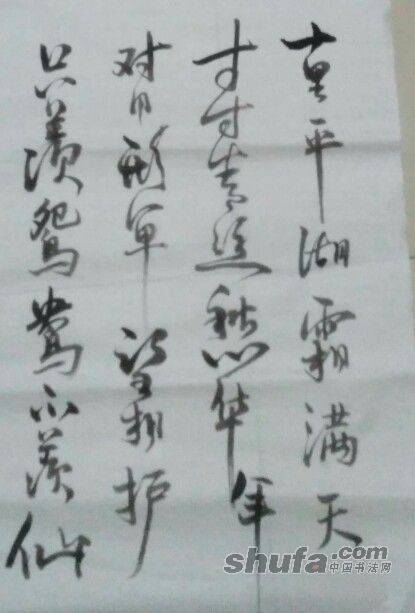 十里平湖霜满天
寸寸青丝愁华年
对月形单望相护
只羡鸳鸯不羡仙
shufa.com
中国书法网